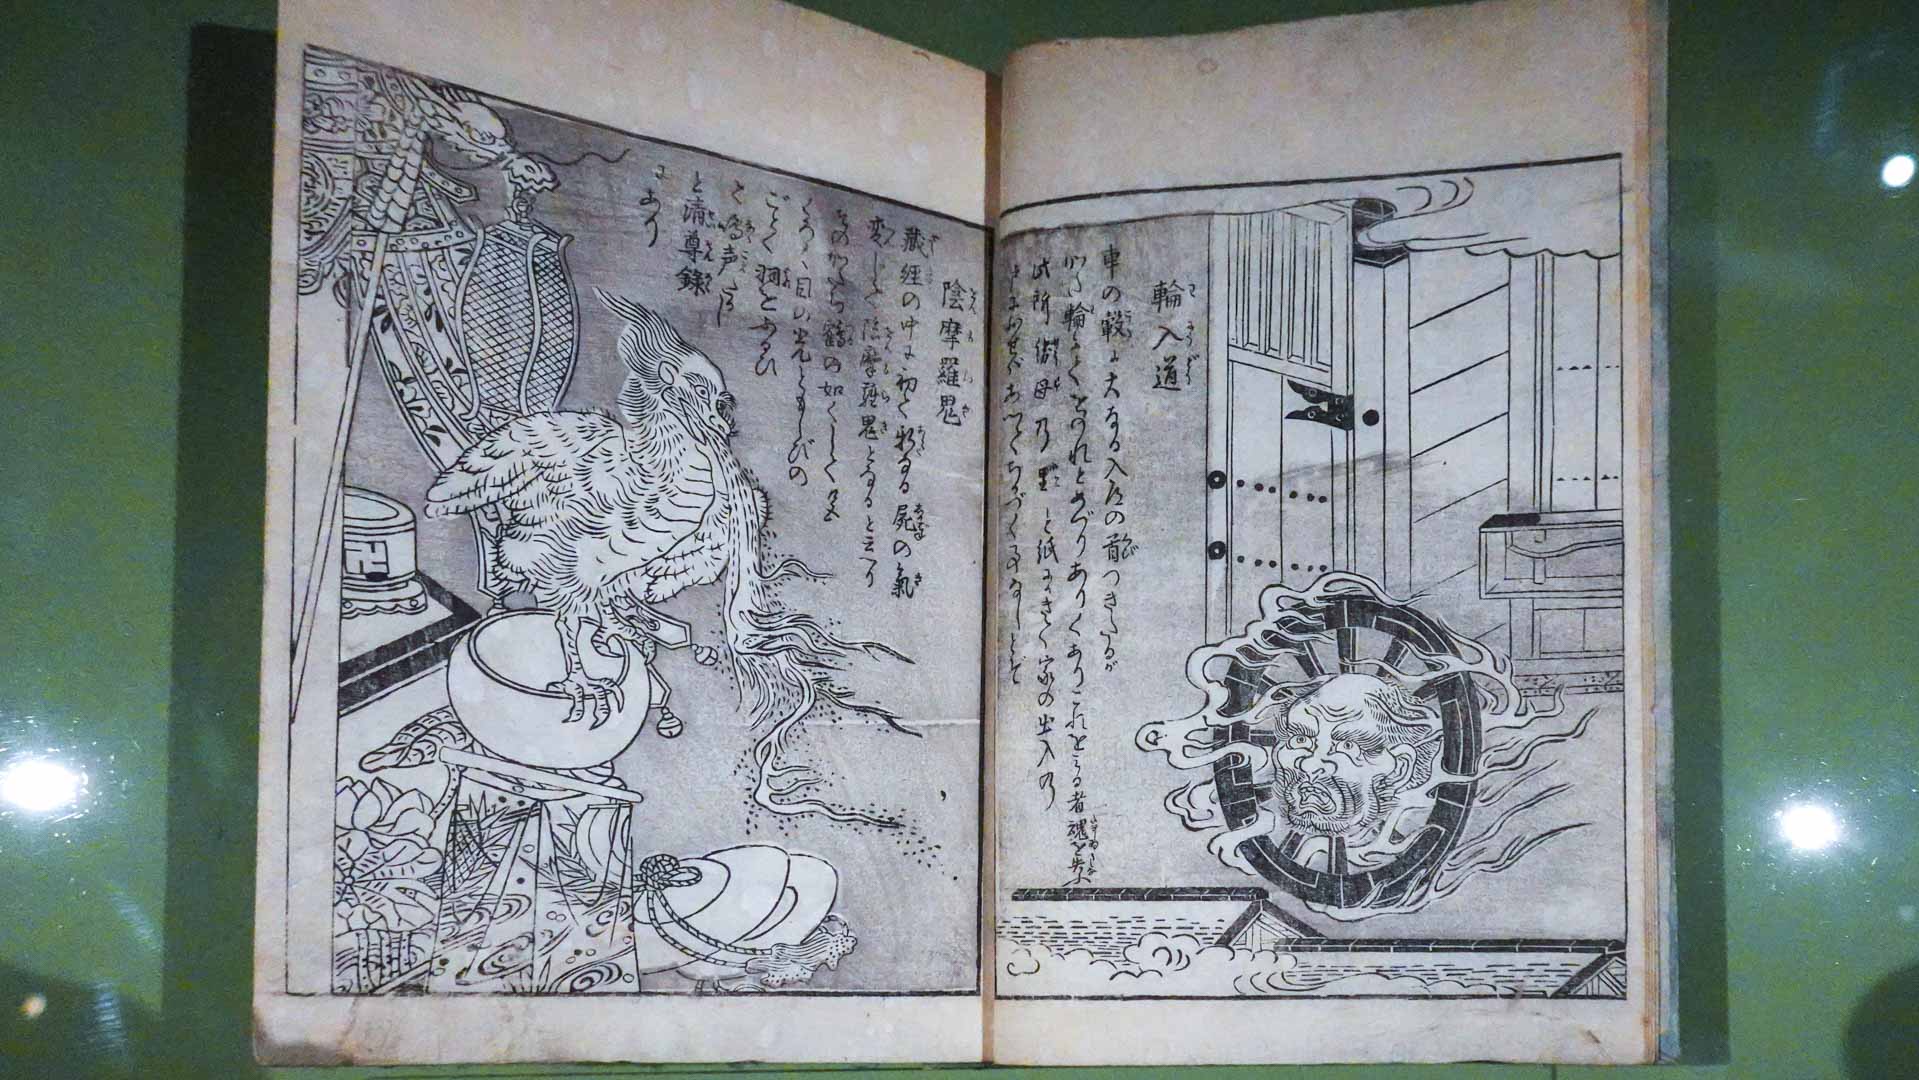 輪入道
車の轂に大なる入道の首つきたるが
かた輪にてをのれとめぐりありくありこれをみる者魂を失ふ
此所勝母の里と紙にかきて家の出入の
戸におせばあへてちかづく事なしとぞ
陰摩羅鬼
蔵経の中に初て新なる屍の氣
変じて陰摩羅鬼となると云へり
そのかたち鶴の如くして色
くろく目の光ともしびの
ごとく羽をふるひ
て鳴声たかし
と清尊録
にあり
卍